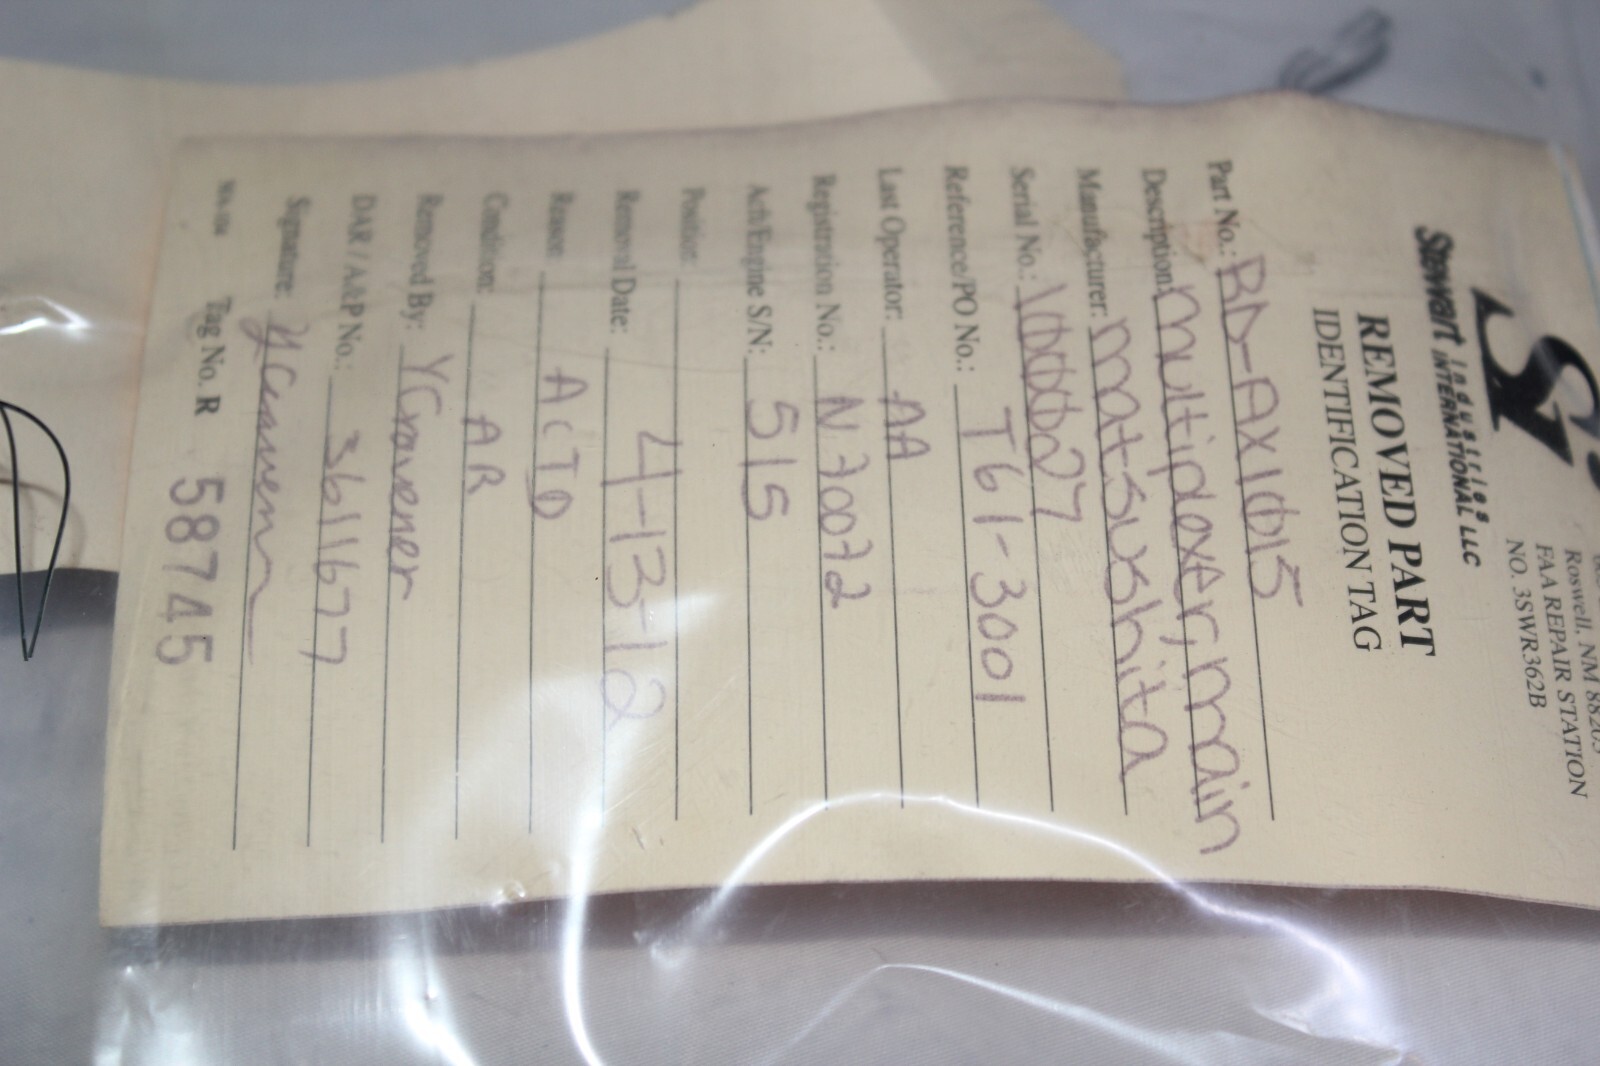 Stewart Industries
INTERNATIONAL LLC
Roswell, NM 88203
FAA REPAIR STATION
NO. 3SWR362B
REMOVED PART
IDENTIFICATION TAG
Part No.: BD-AX1015
Description: multiplexer, main
Manufacturer: matsushita
Serial No.: 1000027
Reference/PO No.: T61-3001
Last Operator: AA
Registration No.: N70072
Acft/Engine S/N: 515
Position:
Removal Date: 4-13-12
Reason: ACTD
Condition: AR
Removed By: YCravener
DAR / A&P No.: 3611677
Signature: YCravener
Tag No. R 58745